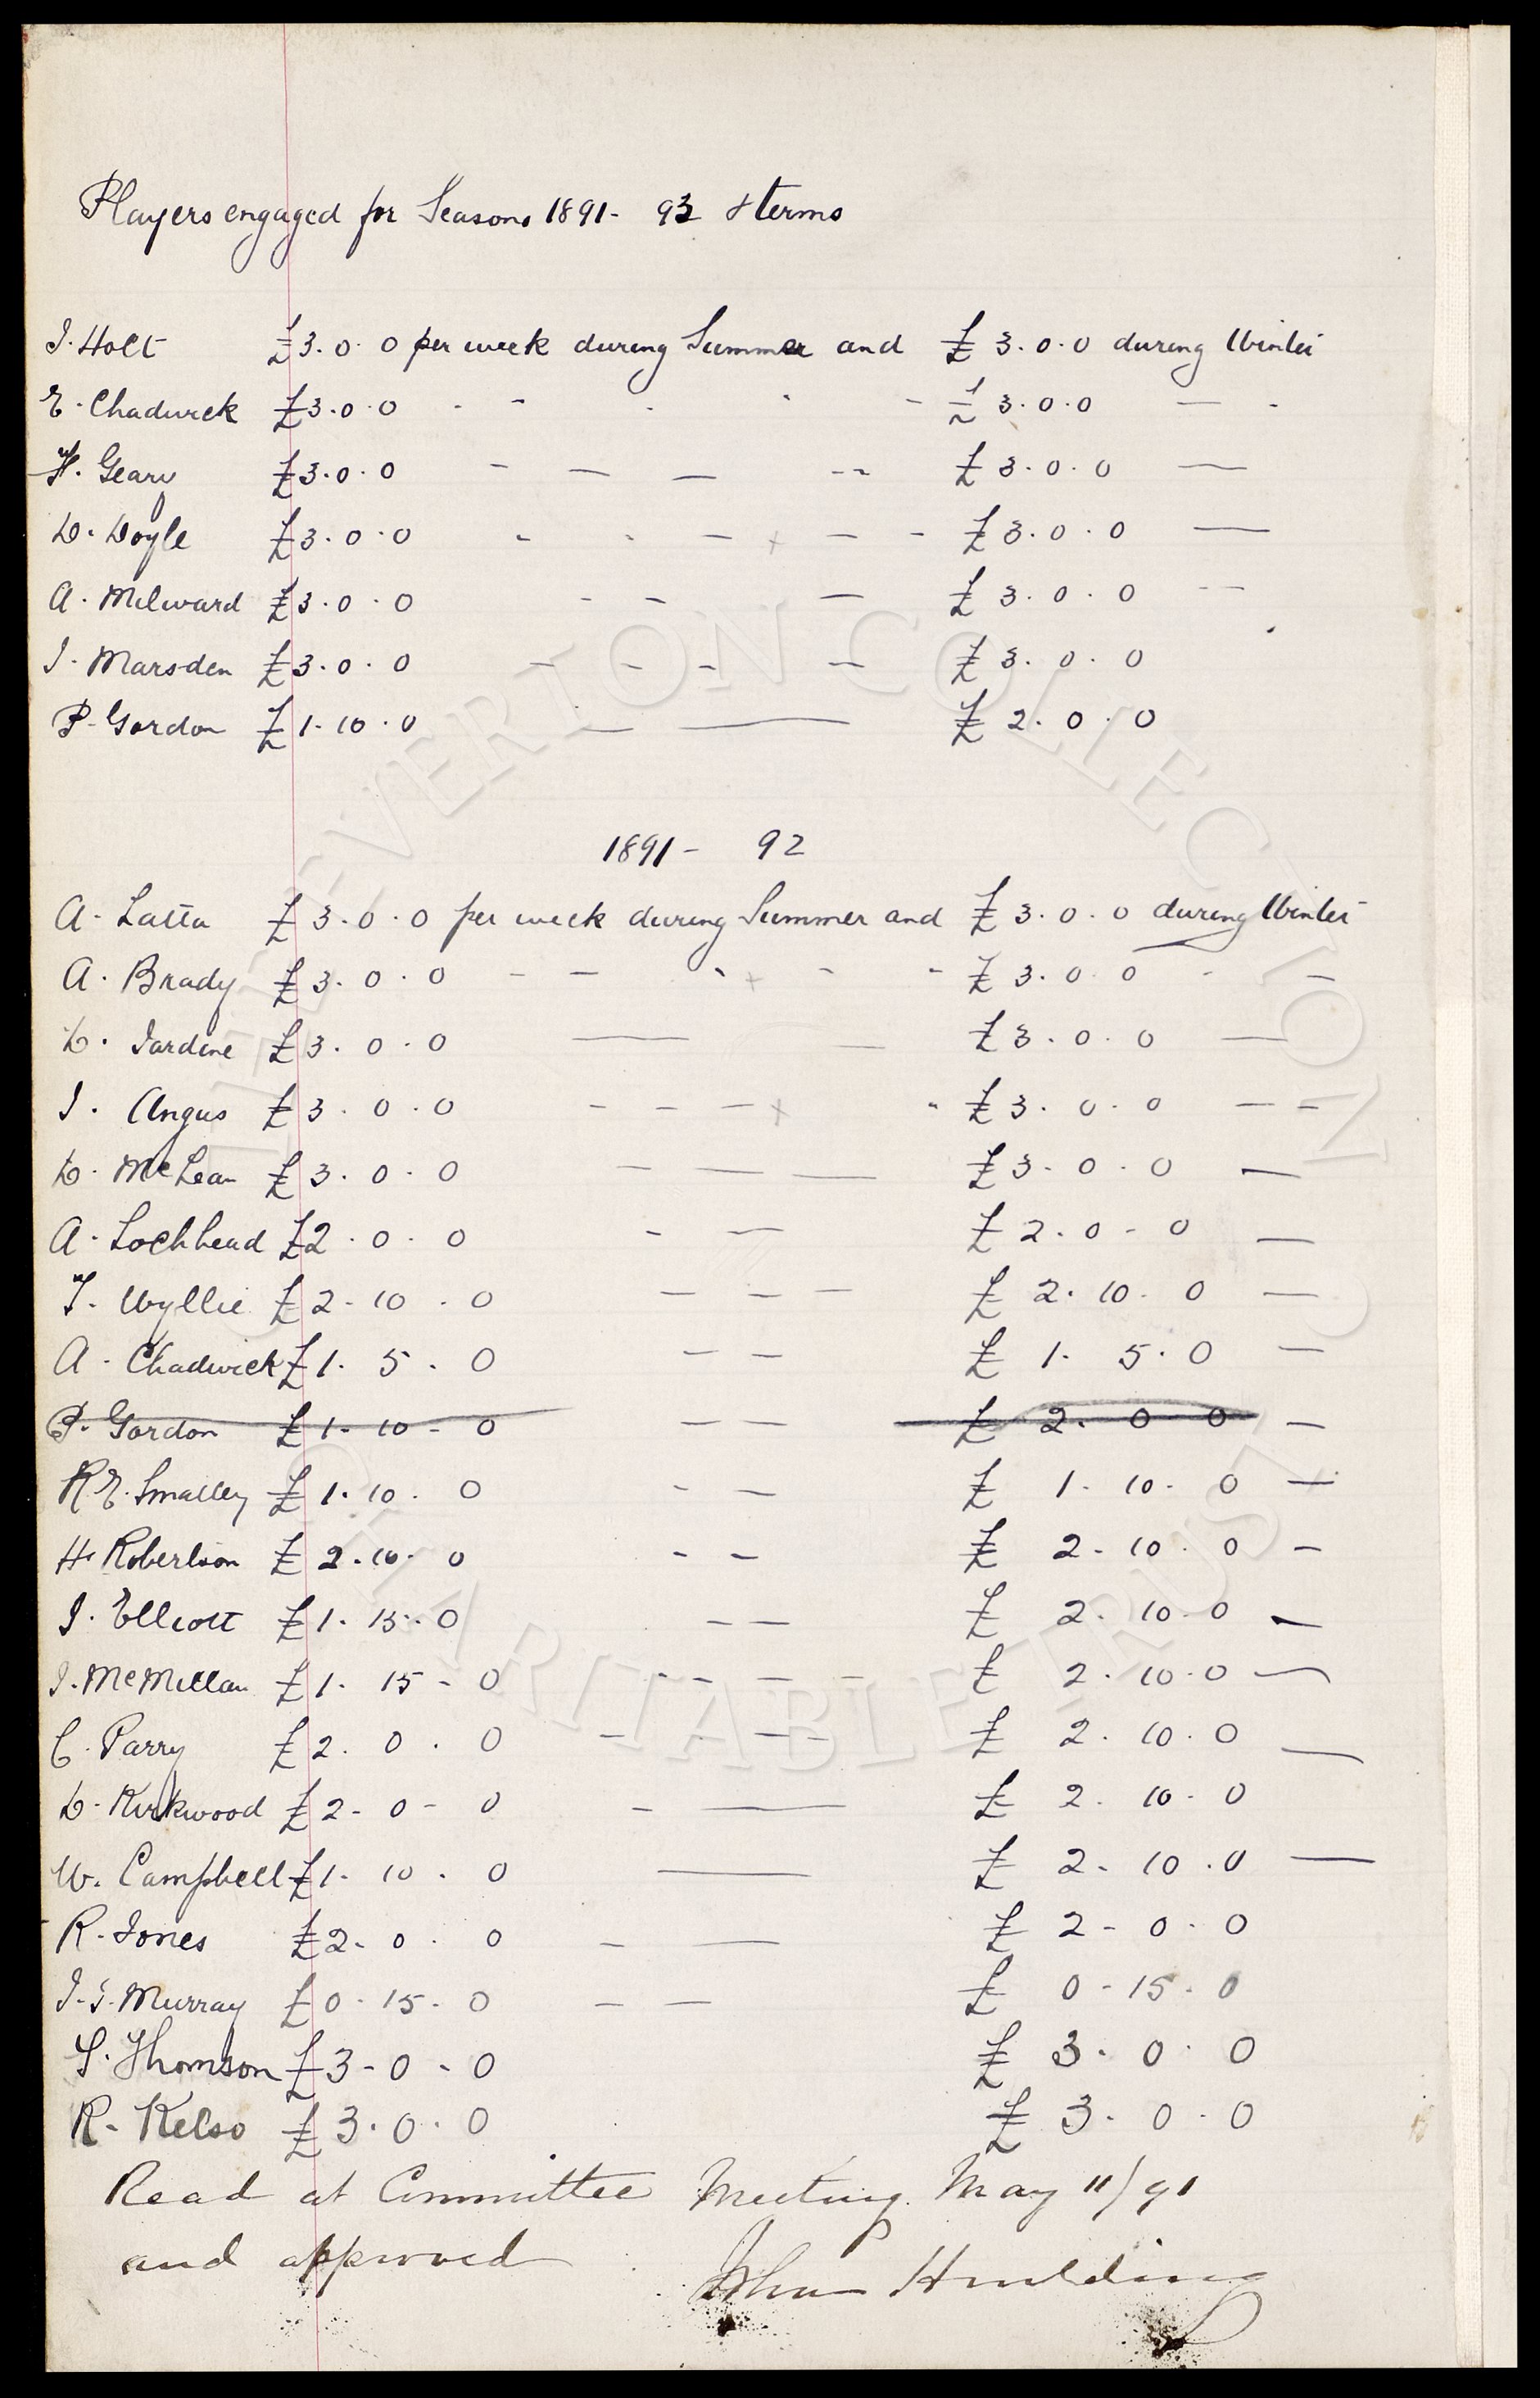 Players engaged for Seasons 1891- 93 & terms
J. Holt £3.0.0 per week during Summer and £3.0.0 during Winter
E. Chadwick £3.0.0 - - - - - £3.0.0 - -
F. Geary £3.0.0 - - - - - £3.0.0 -
D. Doyle £3.0.0 - - - x - - £3.0.0 -
A. Milward £3.0.0 - - - £3.0.0 - -
J. Marsden £3.0.0 - - - - £3.0.0
P. Gordon £1-10.0 - - £2.0.0
1891- 92
A. Latta £3.0.0 per week during Summer and £3.0.0 during Winter
A. Brady £3.0.0 - - - x - - £3.0.0 - -
D. Jardine £3.0.0 - - £3.0.0 -
J. Angus £3.0.0 - - - x - £3.0.0 - -
D. McLean £3.0.0 - - - £3-0.0 -
A. Lochhead £2.0.0 - - £2.0-0 -
T. Wyllie £2-10.0 - - - £2.10-0 -
A. Chadwick £1.5.0 - - £1.5.0 -
P. Gordon £1-10-0 - - £2.0.0 -
R.E. Smalley £1.10.0 - - £1-10-0 -
H. Robertson £2.10-0 - - £2-10.0 -
J. Elliott £1.15.0 - - £2.10.0 -
J. McMillan £1.15-0 - - - - £2.10.0 -
C. Parry £2.0.0 - - - £2.10.0 -
D. Kirkwood £2-0-0 - - £2.10-0
W. Campbell £1-10.0 - £2-10.0 -
R. Jones £2-0.0 - - £2-0.0
J.T. Murray £0-15-0 - - £0-15-0
S. Thomson £3-0-0 £3.0.0
R. Kelso £3.0.0 £3-0.0
Read at Committee Meeting May 11/91
and approved John Houlding
EVERTON COLLECTION CHARITABLE TRUST